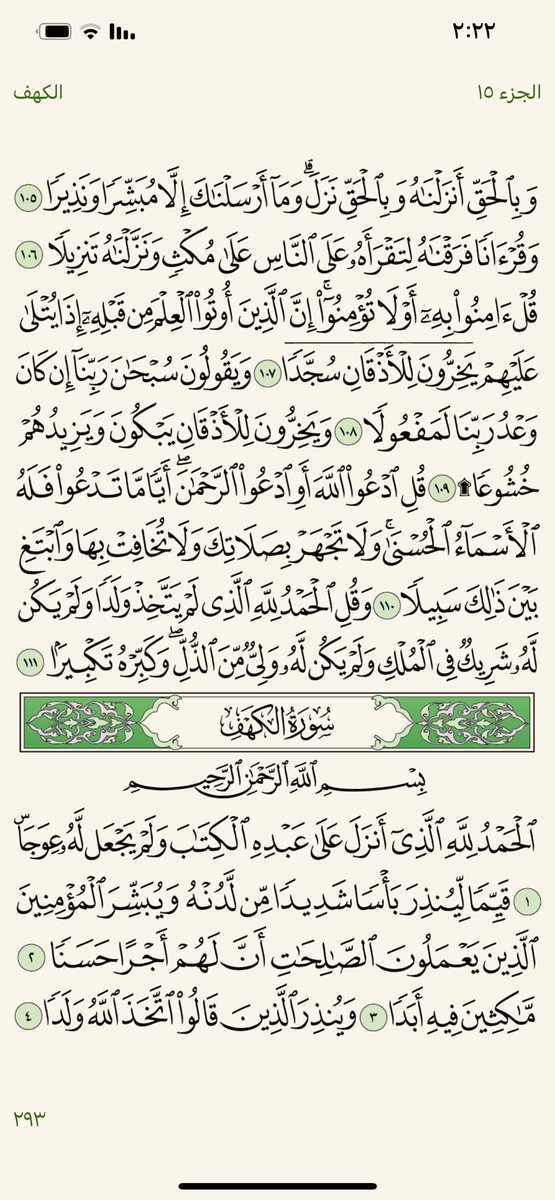 ٢:٢٢
الجزء ١٥
الكهف
وَبِٱلْحَقِّ أَنزَلْنَٰهُ وَبِٱلْحَقِّ نَزَلَ ۗ وَمَآ أَرْسَلْنَٰكَ إِلَّا مُبَشِّرًا وَنَذِيرًا ١٠٥
وَقُرْءَانًا فَرَقْنَٰهُ لِتَقْرَأَهُۥ عَلَى ٱلنَّاسِ عَلَىٰ مُكْثٍ وَنَزَّلْنَٰهُ تَنزِيلًا ١٠٦
قُلْ ءَامِنُوا۟ بِهِۦٓ أَوْ لَا تُؤْمِنُوٓا۟ ۚ إِنَّ ٱلَّذِينَ أُوتُوا۟ ٱلْعِلْمَ مِن قَبْلِهِۦٓ إِذَا يُتْلَىٰ
عَلَيْهِمْ يَخِرُّونَ لِلْأَذْقَانِ سُجَّدًا ١٠٧ وَيَقُولُونَ سُبْحَٰنَ رَبِّنَآ إِن كَانَ
وَعْدُ رَبِّنَا لَمَفْعُولًا ١٠٨ وَيَخِرُّونَ لِلْأَذْقَانِ يَبْكُونَ وَيَزِيدُهُمْ
خُشُوعًا ۩ ١٠٩ قُلِ ٱدْعُوا۟ ٱللَّهَ أَوِ ٱدْعُوا۟ ٱلرَّحْمَٰنَ ۖ أَيًّا مَّا تَدْعُوا۟ فَلَهُ
ٱلْأَسْمَآءُ ٱلْحُسْنَىٰ ۚ وَلَا تَجْهَرْ بِصَلَاتِكَ وَلَا تُخَافِتْ بِهَا وَٱبْتَغِ
بَيْنَ ذَٰلِكَ سَبِيلًا ١١٠ وَقُلِ ٱلْحَمْدُ لِلَّهِ ٱلَّذِى لَمْ يَتَّخِذْ وَلَدًا وَلَمْ يَكُن
لَّهُۥ شَرِيكٌ فِى ٱلْمُلْكِ وَلَمْ يَكُن لَّهُۥ وَلِىٌّ مِّنَ ٱلذُّلِّ ۖ وَكَبِّرْهُ تَكْبِيرًۢا ١١١
سُورَةُ ٱلْكَهْفِ
بِسْمِ ٱللَّهِ ٱلرَّحْمَٰنِ ٱلرَّحِيمِ
ٱلْحَمْدُ لِلَّهِ ٱلَّذِىٓ أَنزَلَ عَلَىٰ عَبْدِهِ ٱلْكِتَٰبَ وَلَمْ يَجْعَل لَّهُۥ عِوَجَاۜ
١ قَيِّمًا لِّيُنذِرَ بَأْسًا شَدِيدًا مِّن لَّدُنْهُ وَيُبَشِّرَ ٱلْمُؤْمِنِينَ
ٱلَّذِينَ يَعْمَلُونَ ٱلصَّٰلِحَٰتِ أَنَّ لَهُمْ أَجْرًا حَسَنًا ٢
مَّٰكِثِينَ فِيهِ أَبَدًا ٣ وَيُنذِرَ ٱلَّذِينَ قَالُوا۟ ٱتَّخَذَ ٱللَّهُ وَلَدًا ٤
٢٩٣